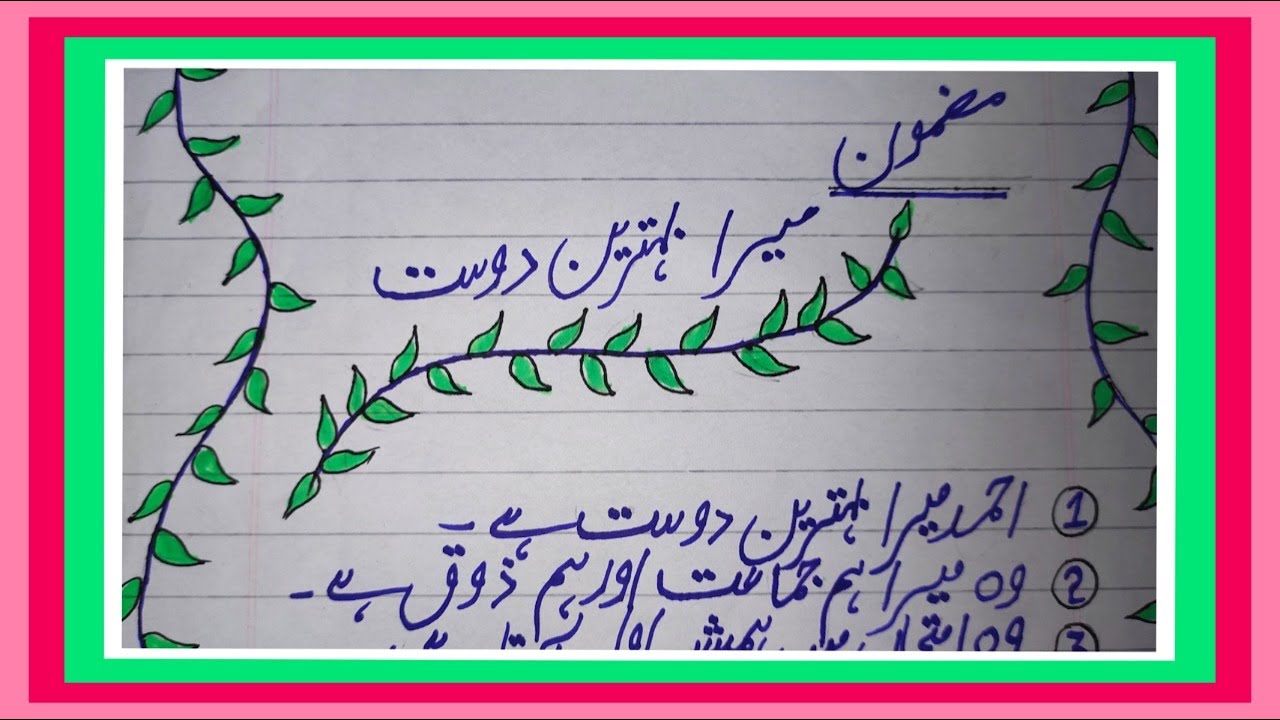 مضمون
میرا بہترین دوست
① احمد میرا بہترین دوست ہے۔
② وہ میرا ہم جماعت اور ہم ذوق ہے۔
③ وہ